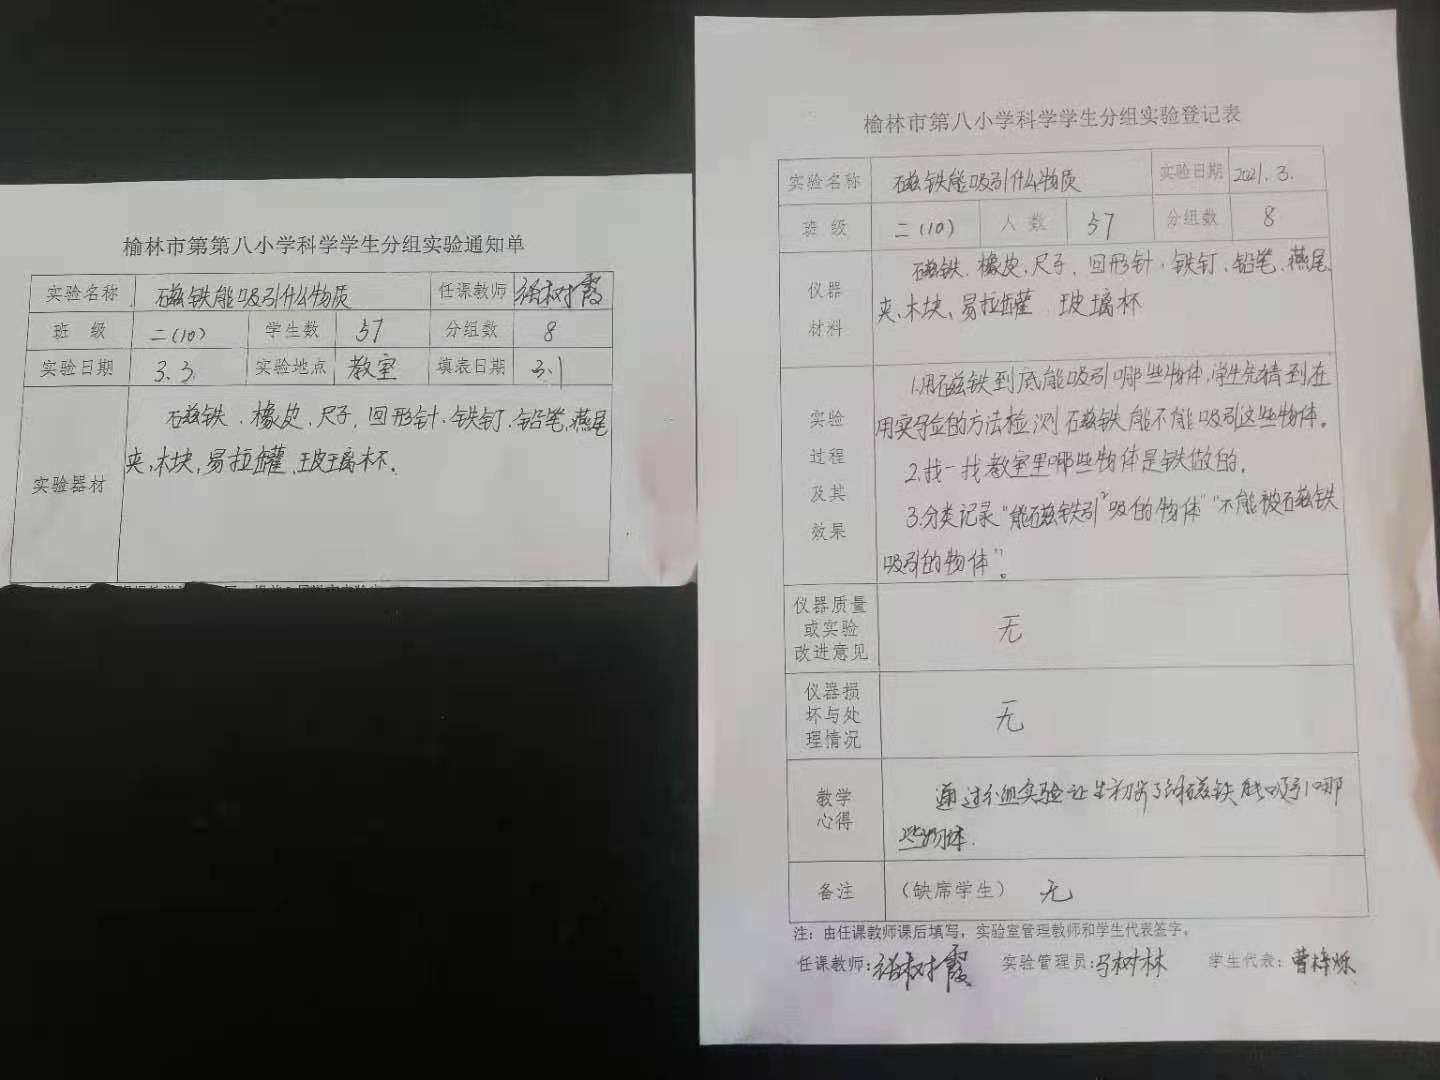 榆林市第第八小学科学学生分组实验通知单
实验名称 磁铁能吸引什么物质 任课教师 张树霞
班 级 二(10) 学生数 57 分组数 8
实验日期 3.3. 实验地点 教室 填表日期 3.1
实验器材
磁铁、橡皮、尺子、回形针、铁钉、铅笔、燕尾
夹、木块、易拉罐、玻璃杯.
榆林市第八小学科学学生分组实验登记表
实验名称 磁铁能吸引什么物质 实验日期 2021.3.
班 级 二(10) 人 数 57 分组数 8
仪器
材料
磁铁、橡皮、尺子、回形针、铁钉、铅笔、燕尾
夹、木块、易拉罐 玻璃杯
实验
过程
及其
效果
1.用磁铁到底能吸引哪些物体,学生先猜到在
用实验的方法检测磁铁能不能吸引这些物体。
2.找一找教室里哪些物体是铁做的.
3.分类记录“能磁铁引吸的物体”“不能被磁铁
吸引的物体”。
仪器质量
或实验
改进意见
无
仪器损
坏与处
理情况
无
教学
心得
通过分组实验让生初步了解磁铁能吸引哪
些物体.
备注 (缺席学生) 无
注：由任课教师课后填写，实验室管理教师和学生代表签字。
任课教师:张树霞 实验管理员:马树林 学生代表:曹梓烁